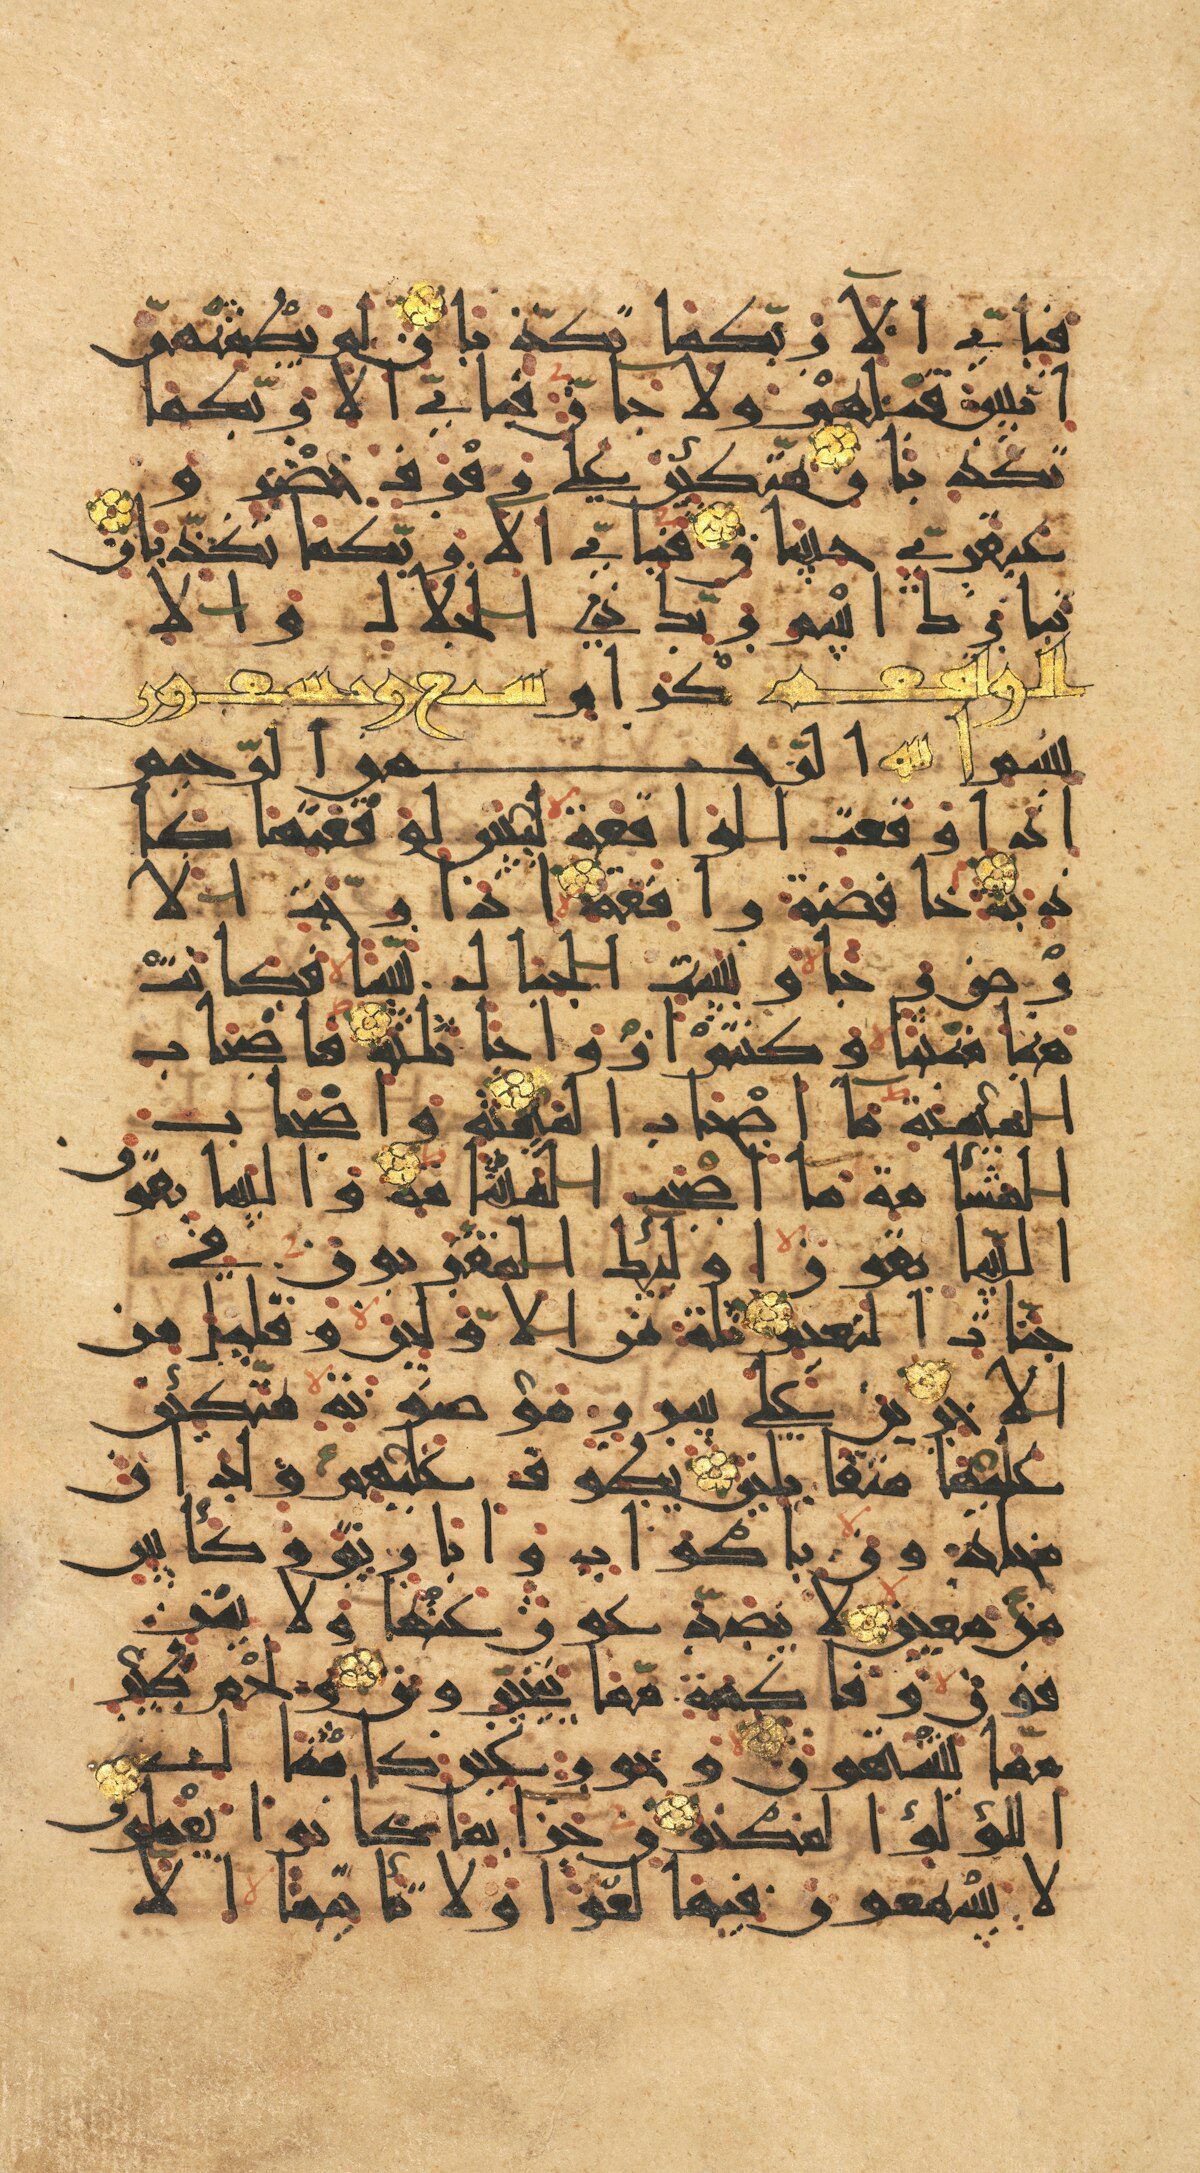 فبأي آلا ربكما تكذبان لم يطمثهن
انس قبلهم ولا جان فبأي آلا ربكما
تكذبان متكئن على رفرف خضر و
عبقري حسان فبأي آلا ربكما تكذبان
تبارك اسم ربك ذي الجلال والا
الواقعه كرام سبع وتسعون
بسم الله الرحمن الرحيم
اذا وقعت الواقعة ليس لوقعتها كا
ذبة خافضة رافعة اذا رجت الا
رض رجا وبست الجبال بسا فكانت
هبا منبثا وكنتم ازواجا ثلثة فاصحاب
الميمنة ما اصحاب الميمنة واصحاب
المشأمة ما اصحب المشأمة والسابقون
السابقون اوليك المقربون في
جنات النعيم ثلة من الاولين وقليل من
الاخرين على سرر موضونة متكئن
عليها متقابلين يطوف عليهم ولدان
مخلدون باكواب واباريق وكأس
من معين لا يصدعون عنها ولا ينز
فون وفاكهة مما يتخيرون ولحم طير
مما يشتهون وحور عين كامثال
اللؤلؤا المكنون جزا بما كانوا يعملون
لا يسمعون فيها لغوا ولا تأثيما الا